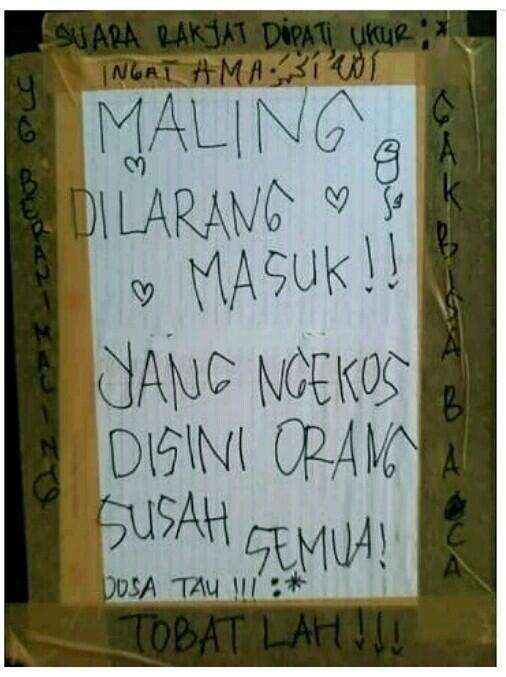 SUARA RAKYAT DIPATI UKUR :*
INGAT AMA
MALING
DILARANG
MASUK!!
YANG NGEKOS
DISINI ORANG
SUSAH
SEMUA!
DOSA TAU !!! :*
TOBAT LAH!!!
YG BERANI MALING
GAK BISA BACA